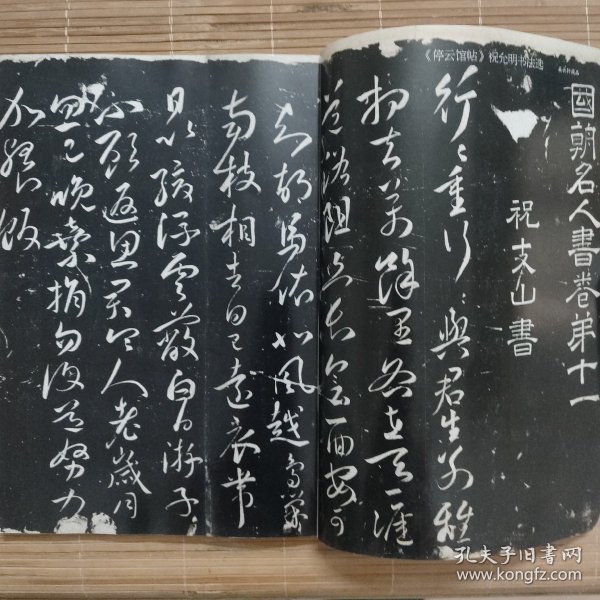 《停云馆帖》祝允明书法选
國朝名人書卷弟十一
祝支山書
行〻重行〻與君生別離
相去萬餘里各在天一涯
道路阻且長會面安可
知胡馬依北風越鳥巢
南枝相去日已遠衣帶
日以緩浮雲蔽白日游子
不顧返思君令人老歲月
忽已晚棄捐勿復道努力
加餐飯
孔夫子旧书网
www.kongfz.com